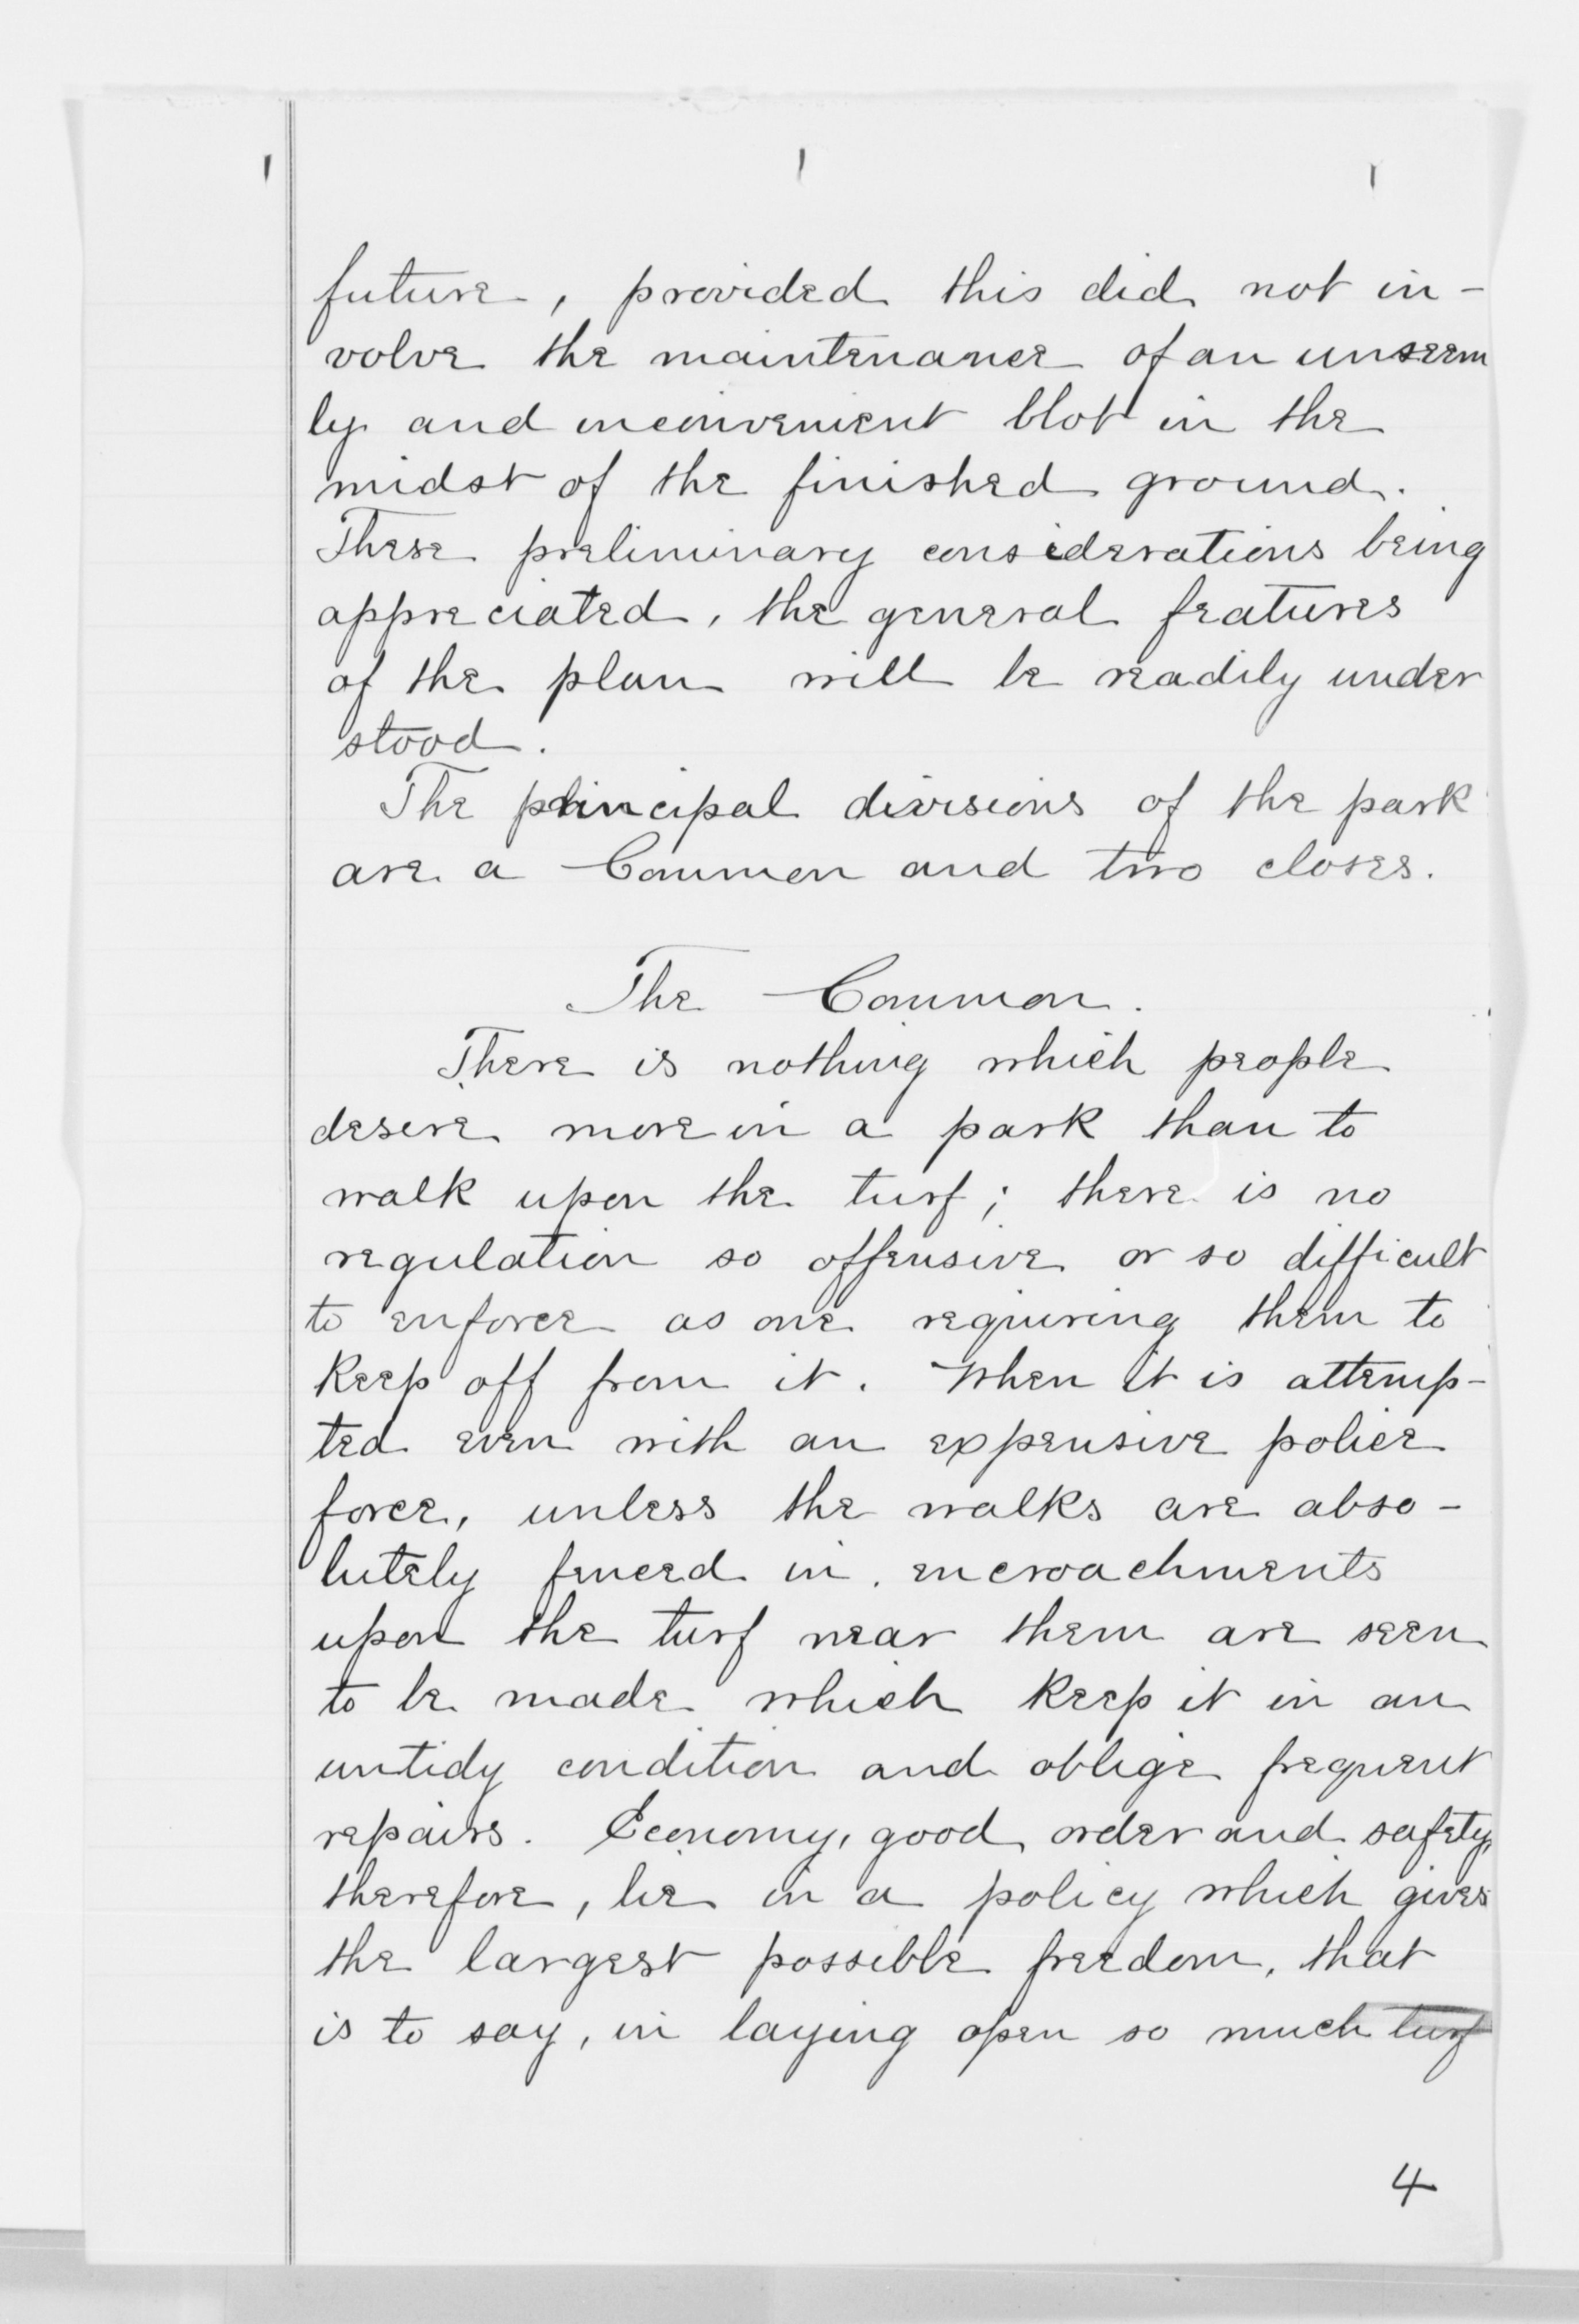 future, provided this did not in-
volve the maintenance of an unseem
ly and inconvenient blot in the
midst of the finished ground.
These preliminary considerations being
appreciated, the general features
of the plan will be readily under
stood.
The principal divisions of the park
are a Common and two closes.
The Common.
There is nothing which people
desire more in a park than to
walk upon the turf; there is no
regulation so offensive or so difficult
to enforce as one requiring them to
keep off from it. When it is attemp-
ted even with an expensive police
force, unless the walks are abso-
lutely fenced in, encroachments
upon the turf near them are seen
to be made which keep it in an
untidy condition and oblige frequent
repairs. Economy, good order and safety,
therefore, lie in a policy which gives
the largest possible freedom, that
is to say, in laying open so much turf
4